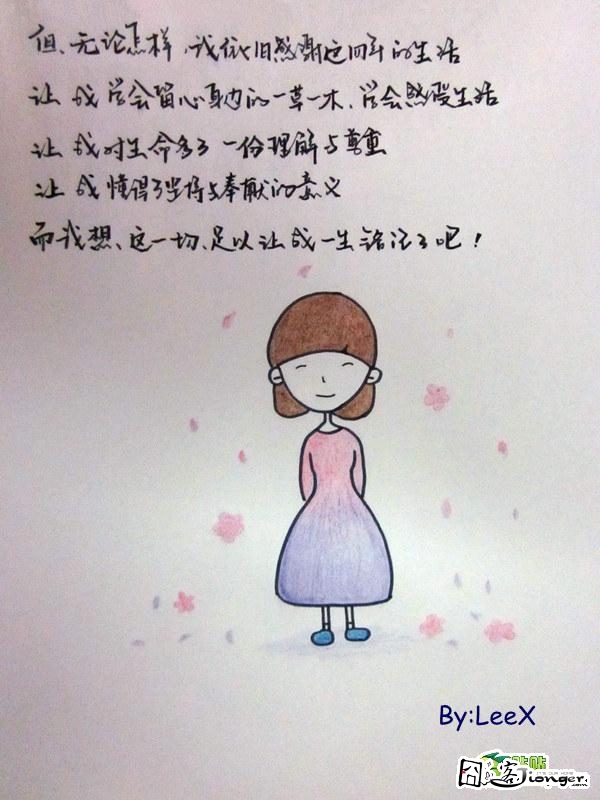 但、无论怎样,我依旧感谢这四年的生活
让我学会留心身边的一草一木、学会热爱生活
让我对生命多了一份理解与尊重
让我懂得了坚持与奉献的意义
而我想、这一切、足以让我一生铭记了吧!
By:LeeX
囧客 Jionger.com